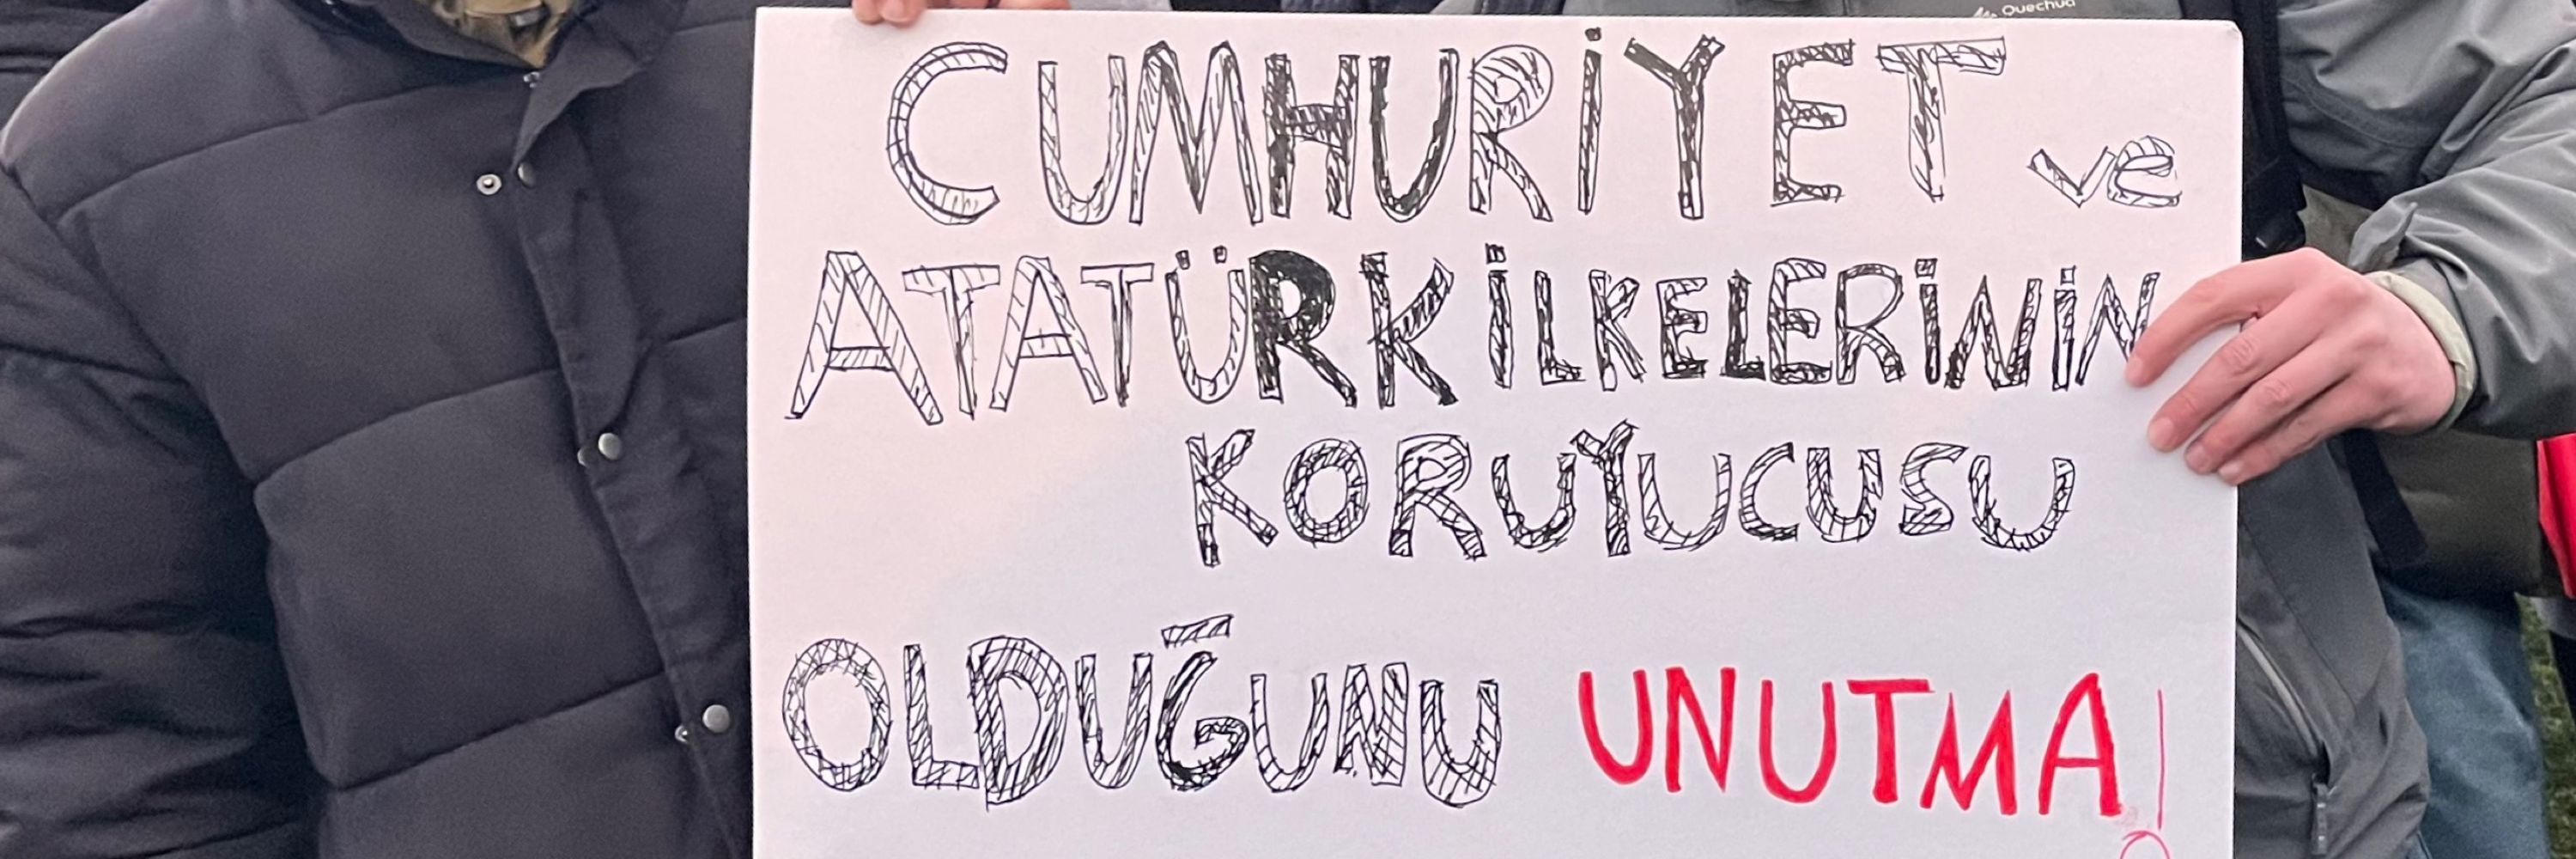 Quechua
CUMHURİYET ve
ATATÜRK İLKELERİNİN
KORUYUCUSU
OLDUĞUNU UNUTMA!